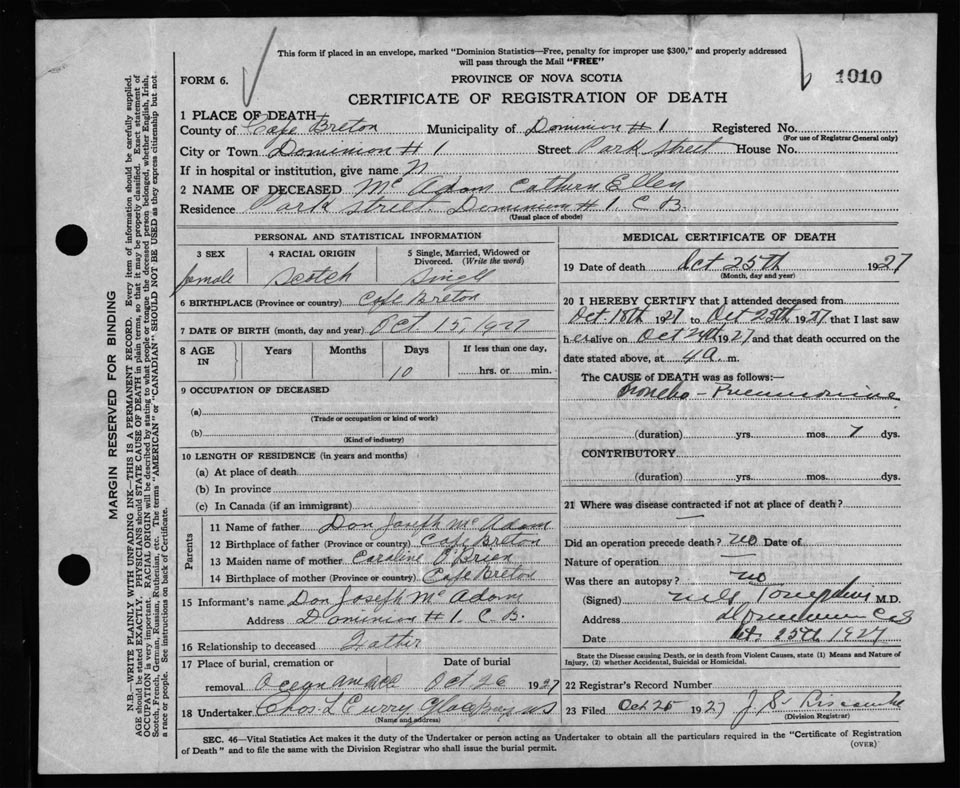 This form if placed in an envelope, marked "Dominion Statistics—Free, penalty for improper use $300," and properly addressed
will pass through the Mail "FREE"
FORM 6.
PROVINCE OF NOVA SCOTIA
1010
CERTIFICATE OF REGISTRATION OF DEATH
1 PLACE OF DEATH—
County of Cape Breton Municipality of Dominion # 1 Registered No.
(For use of Registrar General only)
City or Town Dominion # 1 Street Park Street House No.
If in hospital or institution, give name
2 NAME OF DECEASED Mc Adam Cathern Ellen
Residence Park Street. Dominion # 1. C. B.
(Usual place of abode)
PERSONAL AND STATISTICAL INFORMATION
3 SEX 4 RACIAL ORIGIN 5 Single, Married, Widowed or Divorced. (Write the word)
female Scotch Single
6 BIRTHPLACE (Province or country) Cape Breton
7 DATE OF BIRTH (month, day and year) Oct. 15, 1927
8 AGE IN Years Months Days If less than one day,
10 hrs. or min.
9 OCCUPATION OF DECEASED
(a)
(Trade or occupation or kind of work)
(b)
(Kind of industry)
10 LENGTH OF RESIDENCE (in years and months)
(a) At place of death
(b) In province
(c) In Canada (if an immigrant)
Parents
11 Name of father Don Joseph Mc Adam
12 Birthplace of father (Province or country) Cape Breton
13 Maiden name of mother Caroline O'Brien
14 Birthplace of mother (Province or country) Cape Breton
15 Informant's name Don Joseph Mc Adam
Address Dominion # 1. C. B.
16 Relationship to deceased Father
17 Place of burial, cremation or Date of burial
removal Oct 26 1927
18 Undertaker Chas. L Curry Glace Bay NS
(Name and address)
MEDICAL CERTIFICATE OF DEATH
19 Date of death Oct 25th 1927
(Month, day and year)
20 I HEREBY CERTIFY that I attended deceased from
Oct 18th 1927 to Oct 25th 1927 that I last saw
her alive on Oct 24th 1927 and that death occurred on the
date stated above, at 4 a. m.
The CAUSE of DEATH was as follows:—
Broncho - Pneumonia
(duration) yrs. mos. 7 dys.
CONTRIBUTORY
(duration) yrs. mos. dys.
21 Where was disease contracted if not at place of death?
—
Did an operation precede death? no Date of
Nature of operation —
Was there an autopsy? no
(Signed) M.D.
Address Dominion C B
Date Oct. 25th 1927
State the Disease causing Death, or in death from Violent Causes, state (1) Means and Nature of
Injury, (2) whether Accidental, Suicidal or Homicidal.
22 Registrar's Record Number
23 Filed Oct 25 1927 J. S.
(Division Registrar)
SEC. 46—Vital Statistics Act makes it the duty of the Undertaker or person acting as Undertaker to obtain all the particulars required in the "Certificate of Registration
of Death" and to file the same with the Division Registrar who shall issue the burial permit.
(OVER)
MARGIN RESERVED FOR BINDING
N.B.—WRITE PLAINLY WITH UNFADING INK—THIS IS A PERMANENT RECORD. Every item of information should be carefully supplied.
AGE should be stated EXACTLY. PHYSICIANS should STATE CAUSE OF DEATH in plain terms, so that it may be properly classified. Exact statement of
OCCUPATION is very important. RACIAL ORIGIN will be described by stating to what people or tongue the deceased person belonged, whether English, Irish,
Scotch, French, German, Russian, Ruthenian, etc. The terms "AMERICAN" or "CANADIAN" SHOULD NOT BE USED as they express citizenship but not
a race or people. See instructions on back of Certificate.